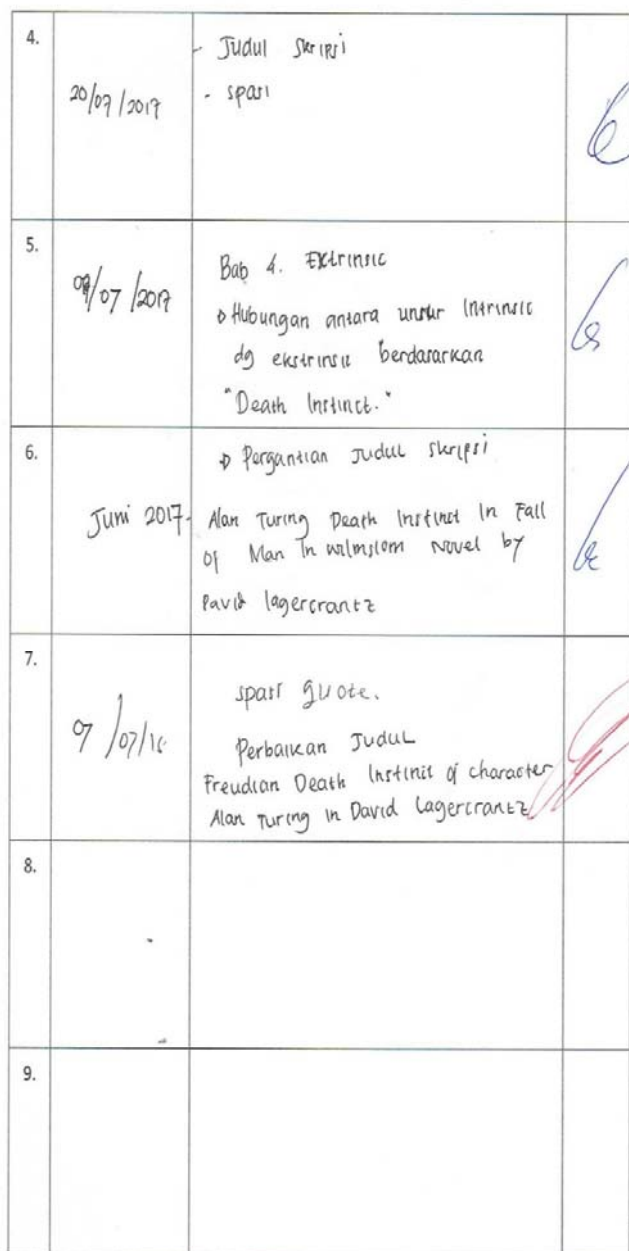 4.
- Judul Skripsi
20/07/2017
- spasi
5.
Bab 4. Extrinsic
/07/2017
Hubungan antara unsur Intrinsic
dg ekstrinsic berdasarkan
"Death Instinct."
6.
Pergantian Judul skripsi
Juni 2017.
Alan Turing Death Instinct In Fall
of Man In wilmslow Novel by
David lagercrantz
7.
spasi quote.
/07/16
Perbaikan Judul
Freudian Death Instinct of character
Alan Turing in David Lagercrantz
8.
9.